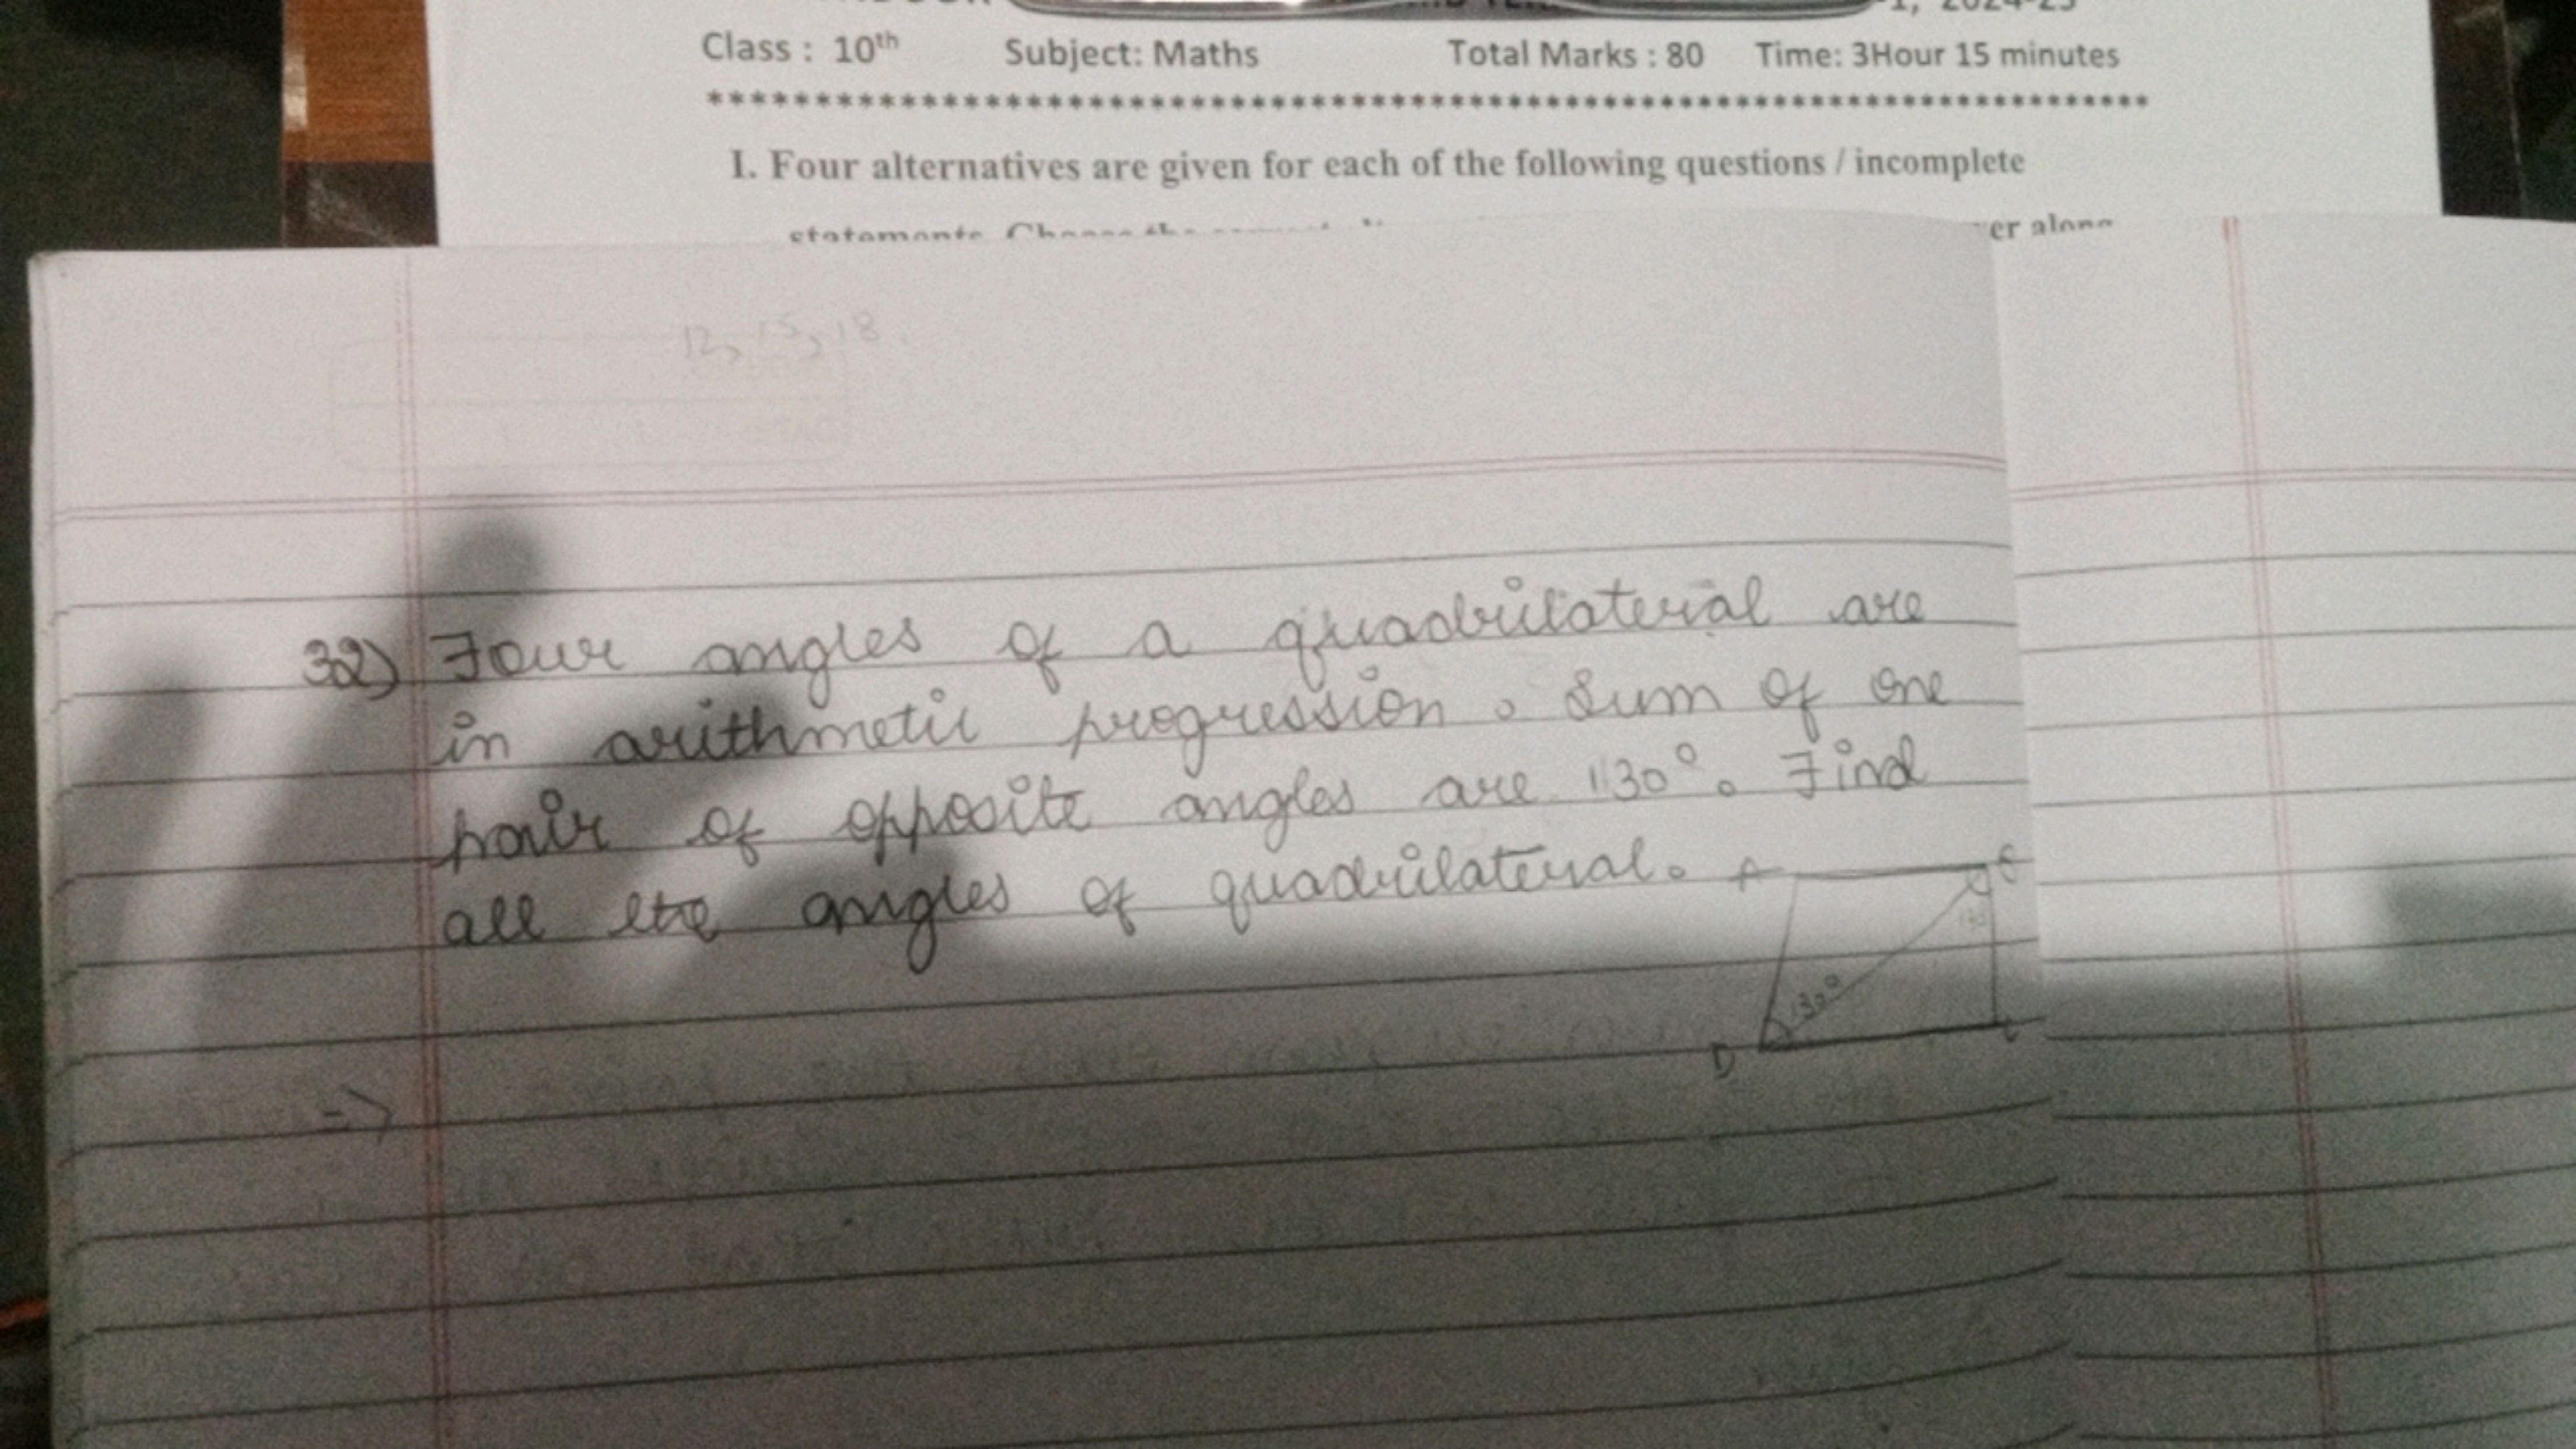 Class : 10th Subject: Maths Total Marks : 80 Time: 3Hour 15 minutes
************************************************************************
I. Four alternatives are given for each of the following questions / incomplete
statements. Choose the
er along
12, 15, 18.
32) Four angles of a quadrilateral are
in arithmetic progression. Sum of one
pair of opposite angles are 130°. Find
all the angles of quadrilateral.
A
130°
D
=>